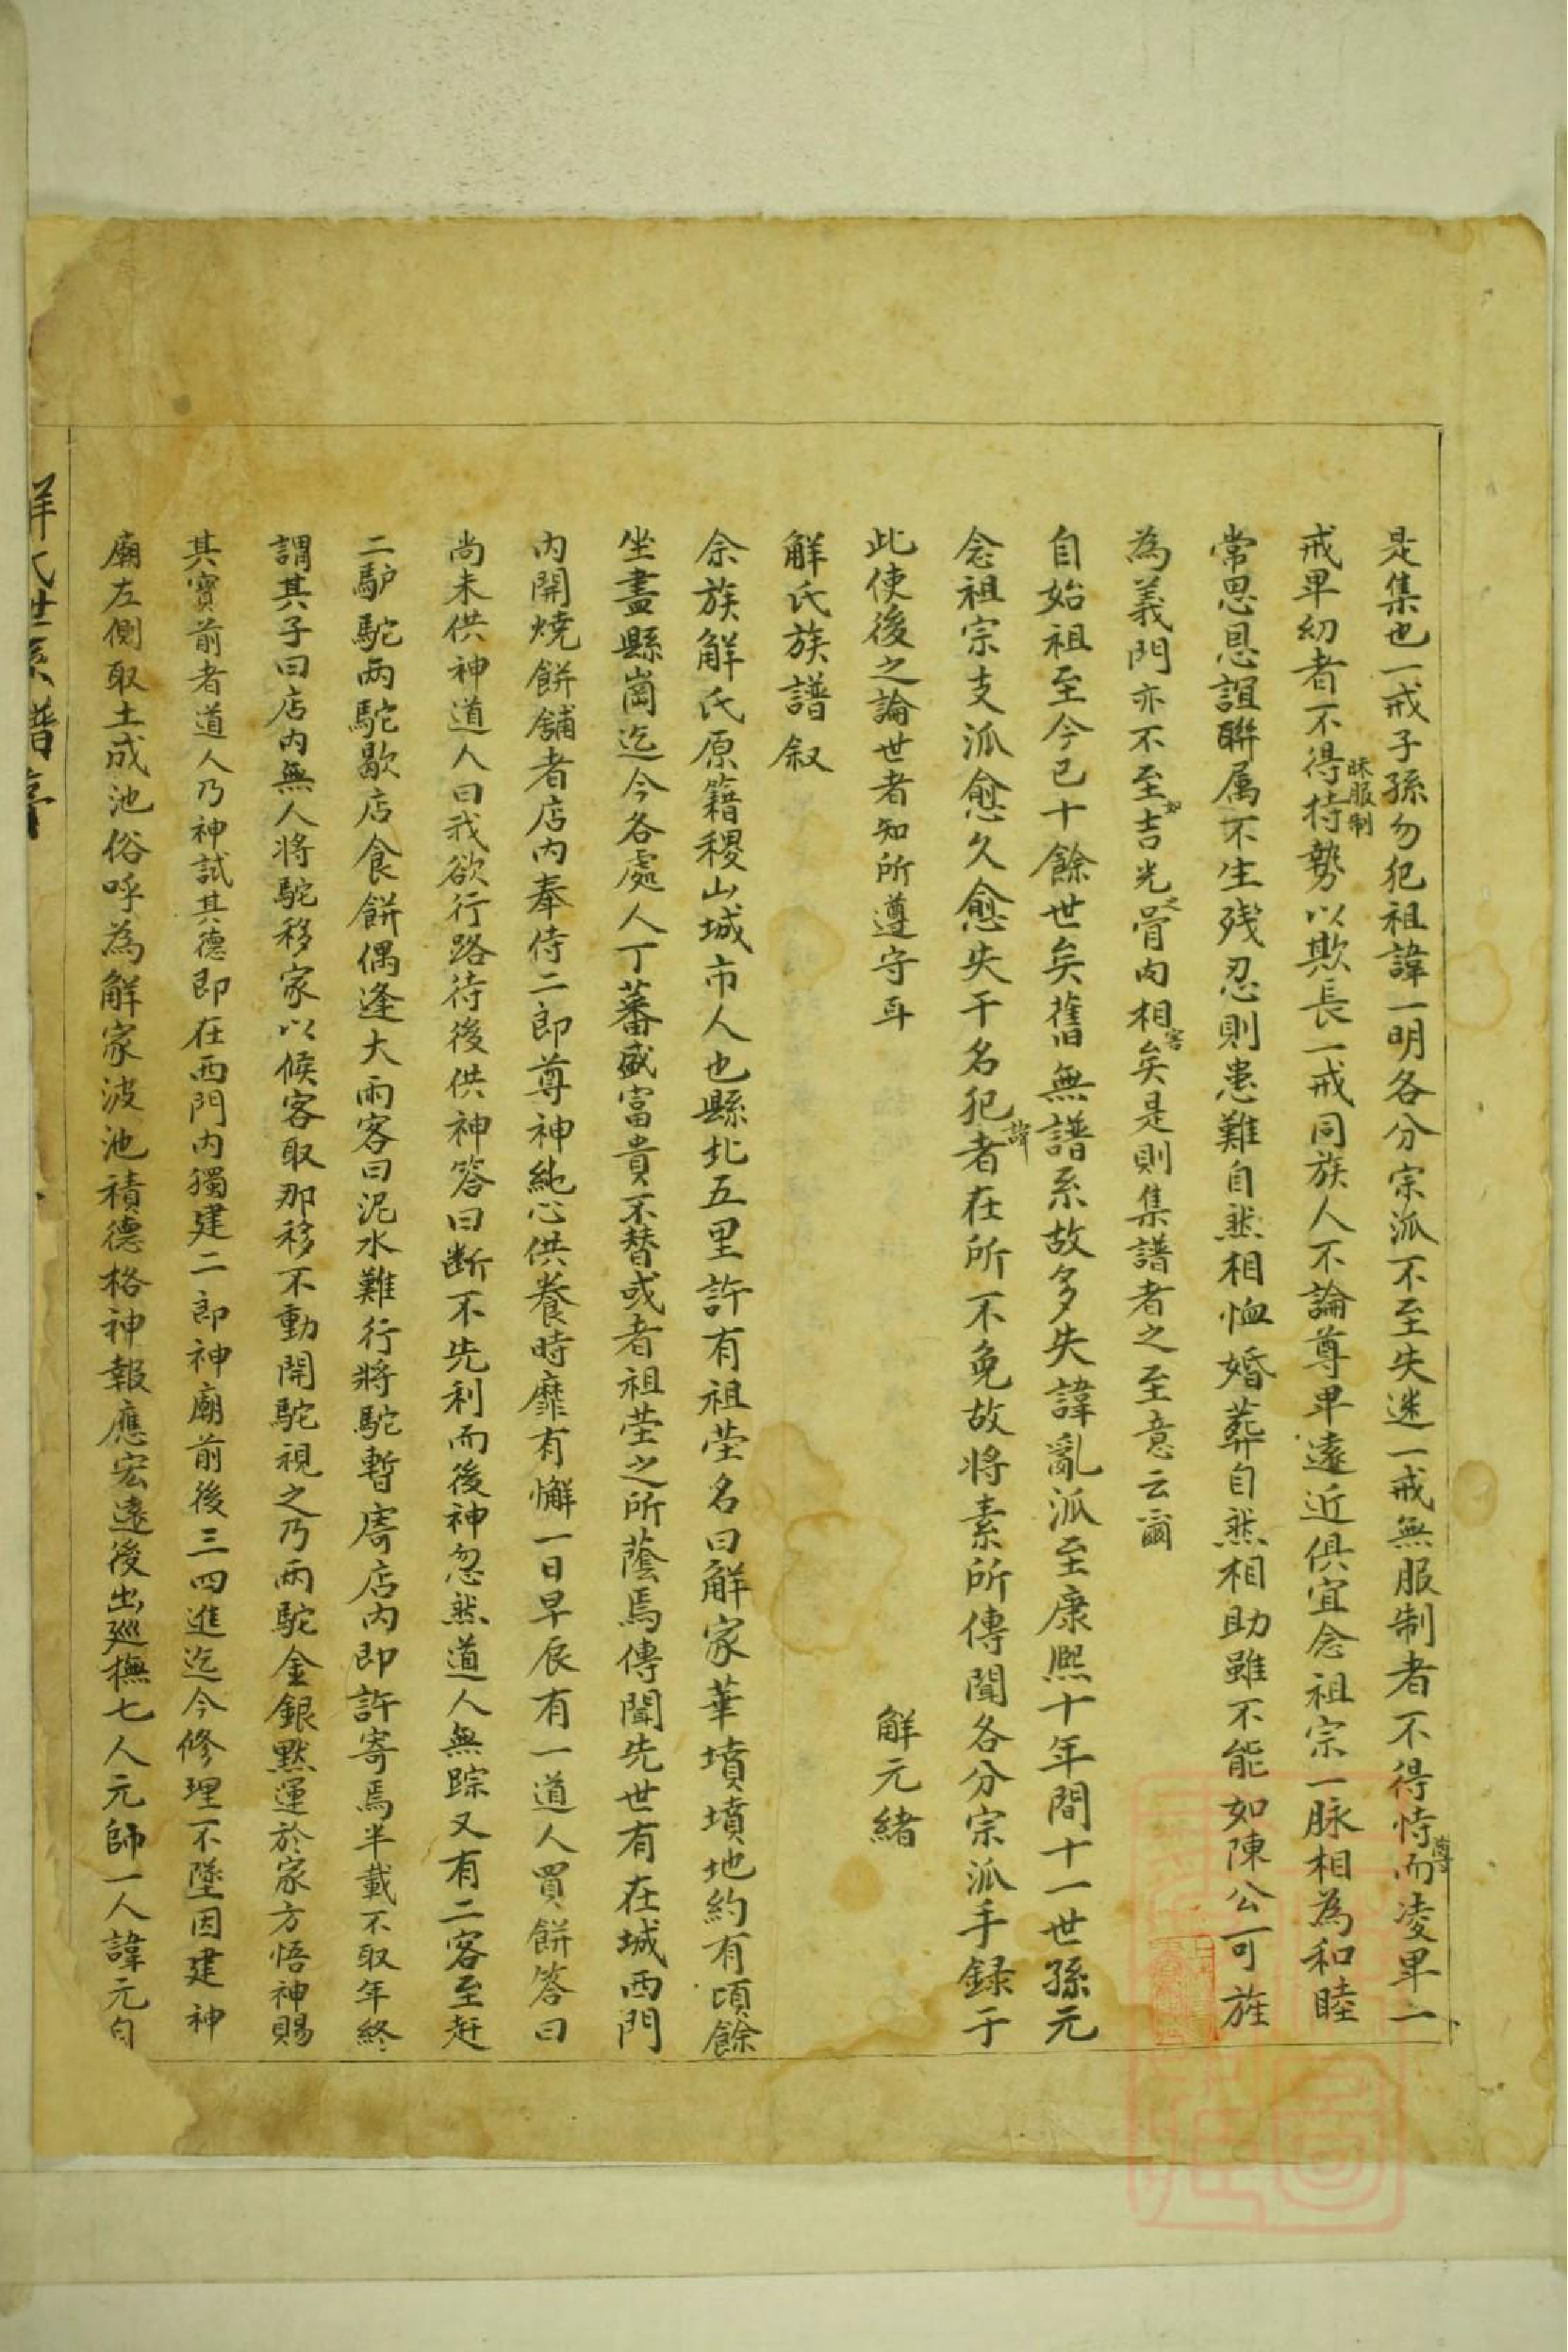 是集也一戒子孫勿犯祖諱一明各分宗派不至失迷一戒無服制者不得恃尊而凌卑一
戒卑幼者不得恃昧服制勢以欺長一戒同族人不論尊卑遠近俱宜念祖宗一脉相為和睦
常思恩誼聯属不生残忍則患難自然相恤婚葬自然相助雖不能如陳公可旌
為義門亦不至如吉光之骨肉相害矣是則集譜者之至意云爾
自始祖至今已十餘世矣舊無譜系故多失諱亂派至康熙十年間十一世孫元
念祖宗支派愈久愈失干名犯諱者在所不免故将素所傳聞各分宗派手録于
此使後之論世者知所遵守耳
解元緒
解氏族譜叙
余族解氏原籍稷山城市人也縣北五里許有祖塋名曰解家華墳墳地約有頃餘
坐盡縣崗迄今各處人丁蕃盛富貴不替或者祖塋之所蔭焉傳聞先世有在城西門
内開燒餅舖者店内奉侍二郎尊神純心供養時靡有懈一日早辰有一道人買餅答曰
尚未供神道人曰我欲行路待後供神答曰断不先利而後神忽然道人無踪又有二客至赶
二馿駝兩駝歇店食餅偶逢大雨客曰泥水難行將駝暫寄店内即許寄焉半載不取年終
謂其子曰店内無人将駝移家以候客取那移不動開駝視之乃兩駝金銀黙運於家方悟神賜
其寳前者道人乃神試其德即在西門内獨建二郎神廟前後三四進迄今修理不墜因建神
廟左側取土成池俗呼為解家波池積德格神報應宏遠後出巡撫七人元帥一人諱元
解氏世系譜